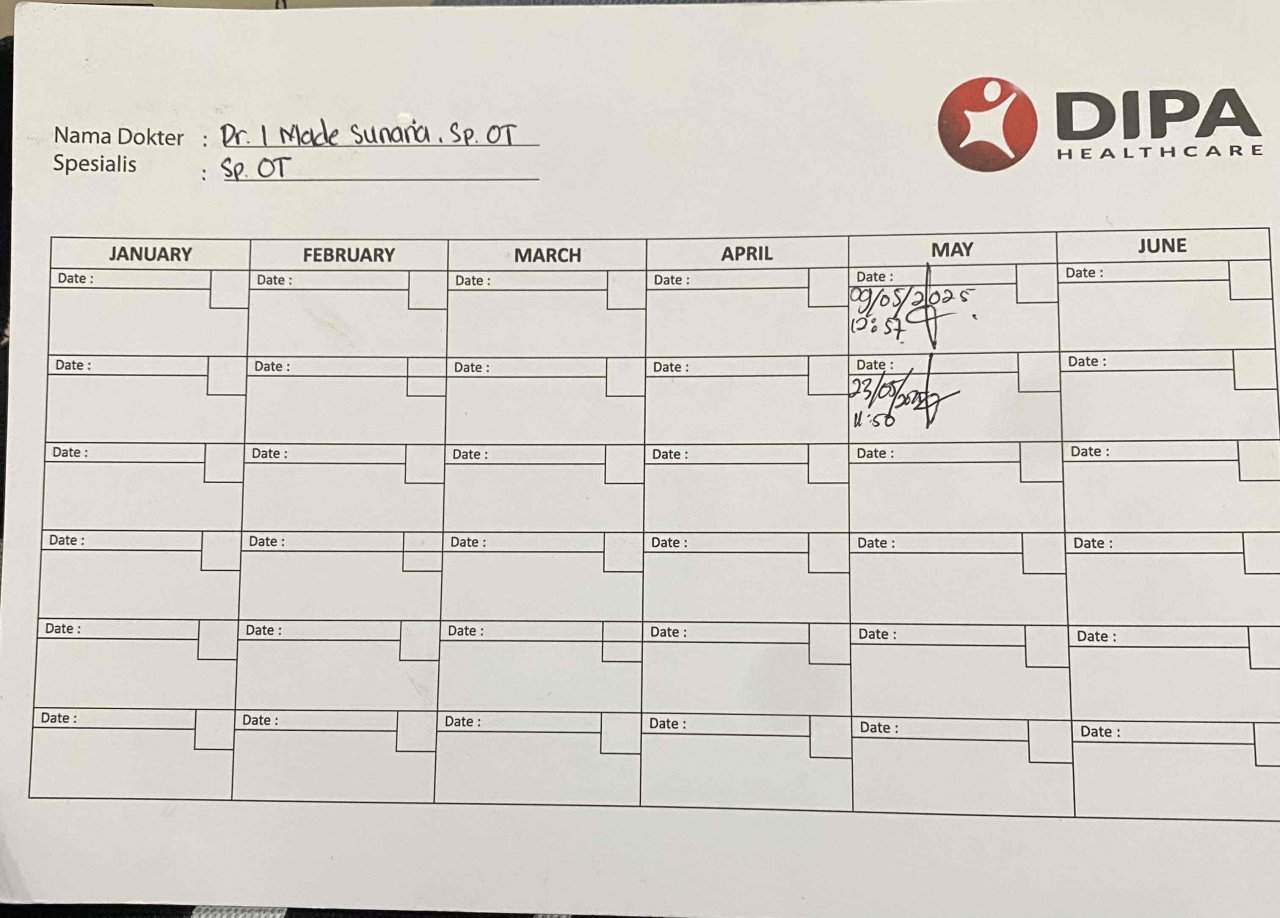 DIPA
HEALTHCARE
Nama Dokter : Dr. I Made Sunaria. Sp. OT
Spesialis : Sp. OT
JANUARY FEBRUARY MARCH APRIL MAY JUNE
Date : Date : Date : Date : Date : Date :
09/05/2025
12:57
Date : Date : Date : Date : Date : Date :
23/05/2025
11:50
Date : Date : Date : Date : Date : Date :
Date : Date : Date : Date : Date : Date :
Date : Date : Date : Date : Date : Date :
Date : Date : Date : Date : Date : Date :